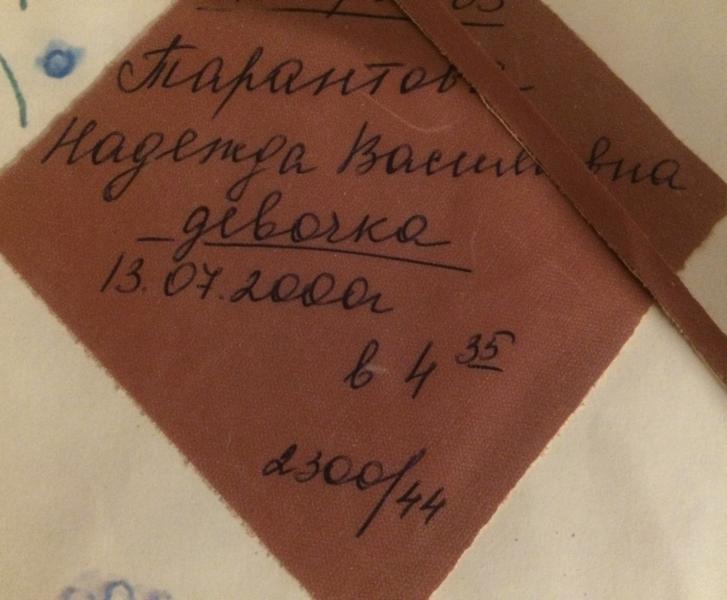 Тарантова
Надежда Васильевна
девочка
13.07.2000г
в 4 35
2300/44